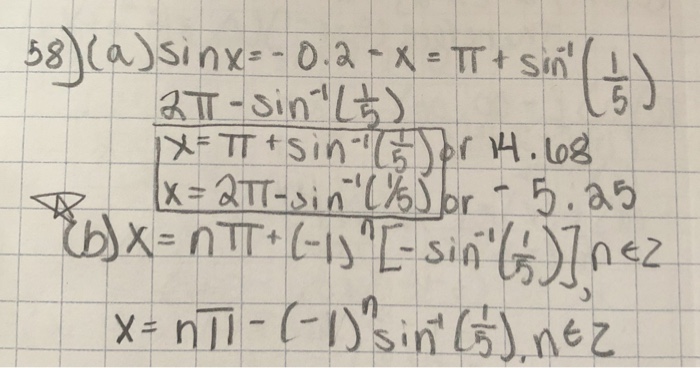 58) (a) sinx = - 0.2 - x = π + sin⁻¹(1/5)
2π - sin⁻¹(1/5)
x = π + sin⁻¹(1/5) or 14.68
x = 2π - sin⁻¹(1/5) or - 5.25
(b) x = nπ + (-1)ⁿ[- sin⁻¹(1/5)], n ∈ Z
x = nπ - (-1)ⁿ sin⁻¹(1/5), n ∈ Z